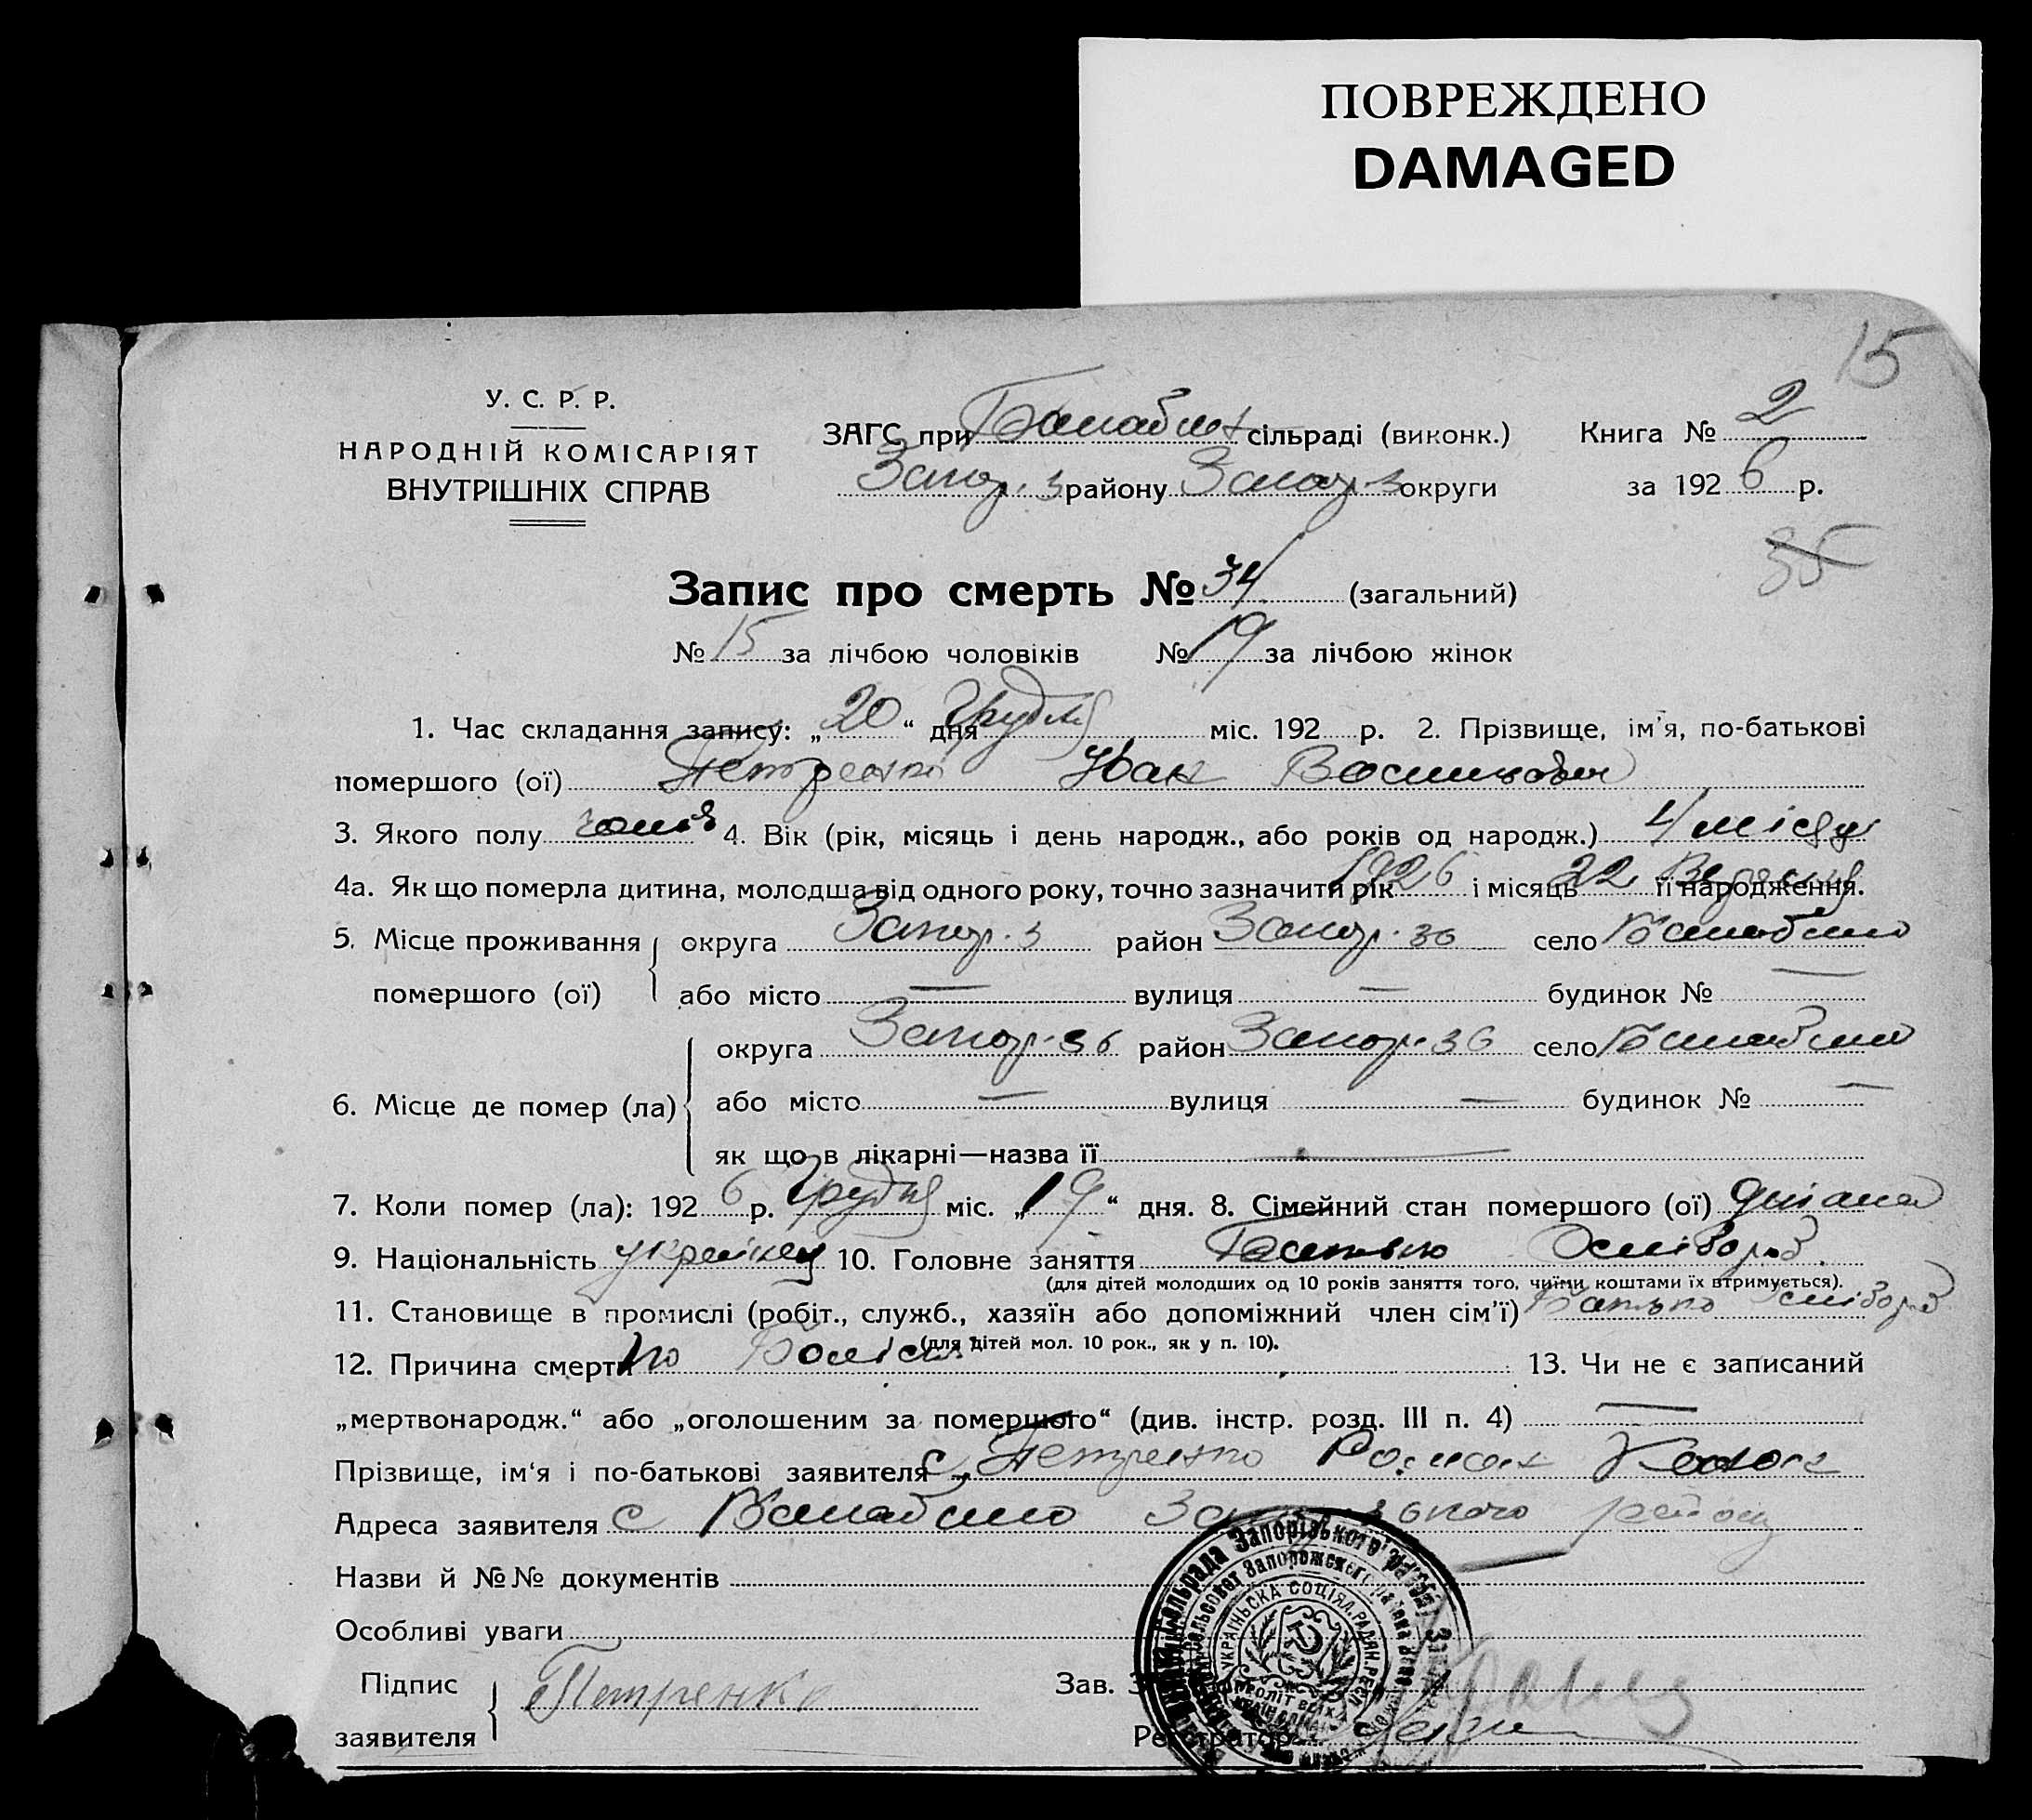 ПОВРЕЖДЕНО
DAMAGED
15
У. С. Р. Р.
НАРОДНІЙ КОМІСАРІЯТ
ВНУТРІШНІХ СПРАВ
ЗАГС при сільраді (виконк.) Книга № 2
Запор. з району Запор. з округи за 1926 р.
35
Запис про смерть № 34 (загальний)
№ 15 за лічбою чоловіків № 19 за лічбою жінок
1. Час складання запису: „20“ дня Грудня міс. 192 р. 2. Прізвище, ім'я, по-батькові
помершого (ої) Петренко Іван
3. Якого полу 4. Вік (рік, місяць і день народж., або років од народж.) 4 місяці
4а. Як що померла дитина, молодша від одного року, точно зазначити рік 1926 і місяць 22 Вересня її народження.
5. Місце проживання округа Запор. з район Запор. зб село Балабино
помершого (ої) або місто — вулиця — будинок № —
округа Запор. зб район Запор. зб село Балабино
6. Місце де помер (ла) або місто — вулиця — будинок № —
як що в лікарні—назва її —
7. Коли помер (ла): 1926 р. Грудня міс. „19“ дня. 8. Сімейний стан помершого (ої)
9. Національність українец 10. Головне заняття Батько
(для дітей молодших од 10 років заняття того, чиїми коштами їх втримується).
11. Становище в промислі (робіт., служб., хазяїн або допоміжний член сім'ї) Батько
(для дітей мол. 10 рок., як у п. 10).
12. Причина смерти 13. Чи не є записаний
„мертвонародж.“ або „оголошеним за помершого“ (див. інстр. розд. III п. 4) —
Прізвище, ім'я і по-батькові заявителя Петренко Роман
Адреса заявителя с Балабино району
Назви й №№ документів —
Особливі уваги
Підпис Петренко Зав.
заявителя Реєстратор
сільрада Запорізького району
сельсовет Запорожского района
УКРАЇНСЬКА СОЦІЯЛ. РАДЯН. РЕСП.